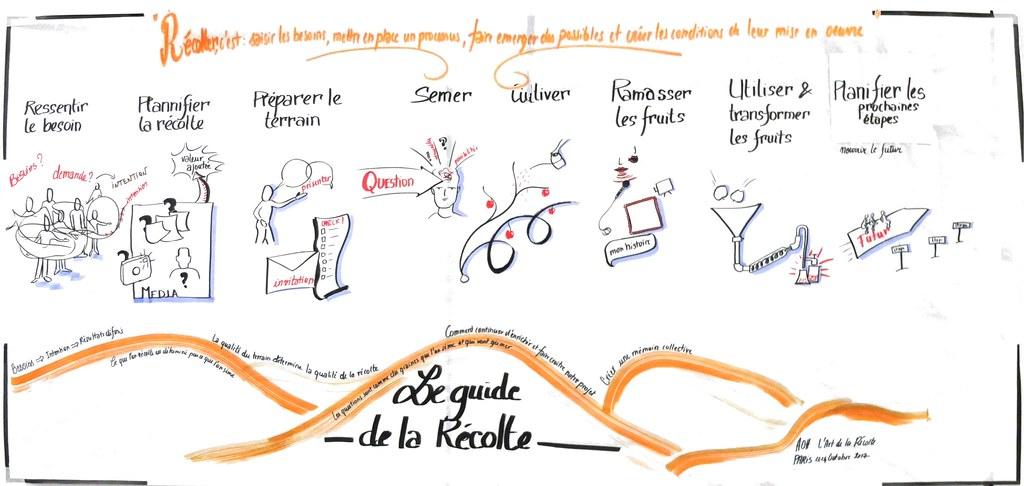 "Récolter, c'est: saisir les besoins, mettre en place un processus, faire émerger des possibles et créer les conditions de leur mise en oeuvre
Ressentir
le besoin
Plannifier
la récolte
Préparer le
terrain
Semer
Cultiver
Ramasser
les fruits
Utiliser &
transformer
les fruits
Planifier les
prochaines
étapes
nourrir le futur
Besoins?
demande?
INTENTION
intention
valeur
ajoutée
?
?
?
MEDIA
présenter
CHECK!
invitation
QUESTION
?
possibilité
mon histoire
Futur
Besoins → Intention → Résultats définis
Ce que l'on récolte est déterminé par ce que l'on sème
La qualité du terrain détermine la qualité de la récolte
Les questions sont comme des graines que l'on sème et qui vont germer
Comment continuer d'enrichir et faire croître notre projet
Créer une mémoire collective
Le guide
de la Récolte
AOH L'Art de la Récolte
PARIS Octobre